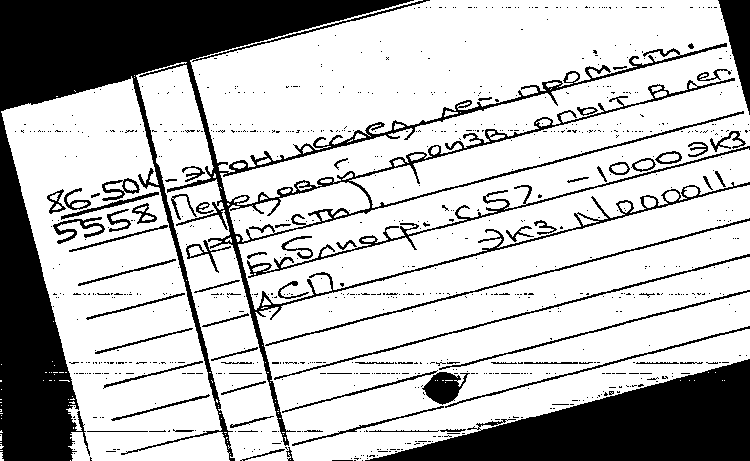 86-50К -экон. исслед. лег. пром-сти.
5558 Передовой произв. опыт в лег.
пром-сти).
Библиогр.: с.57. -1000экз.
ДСП. Экз. N000011.